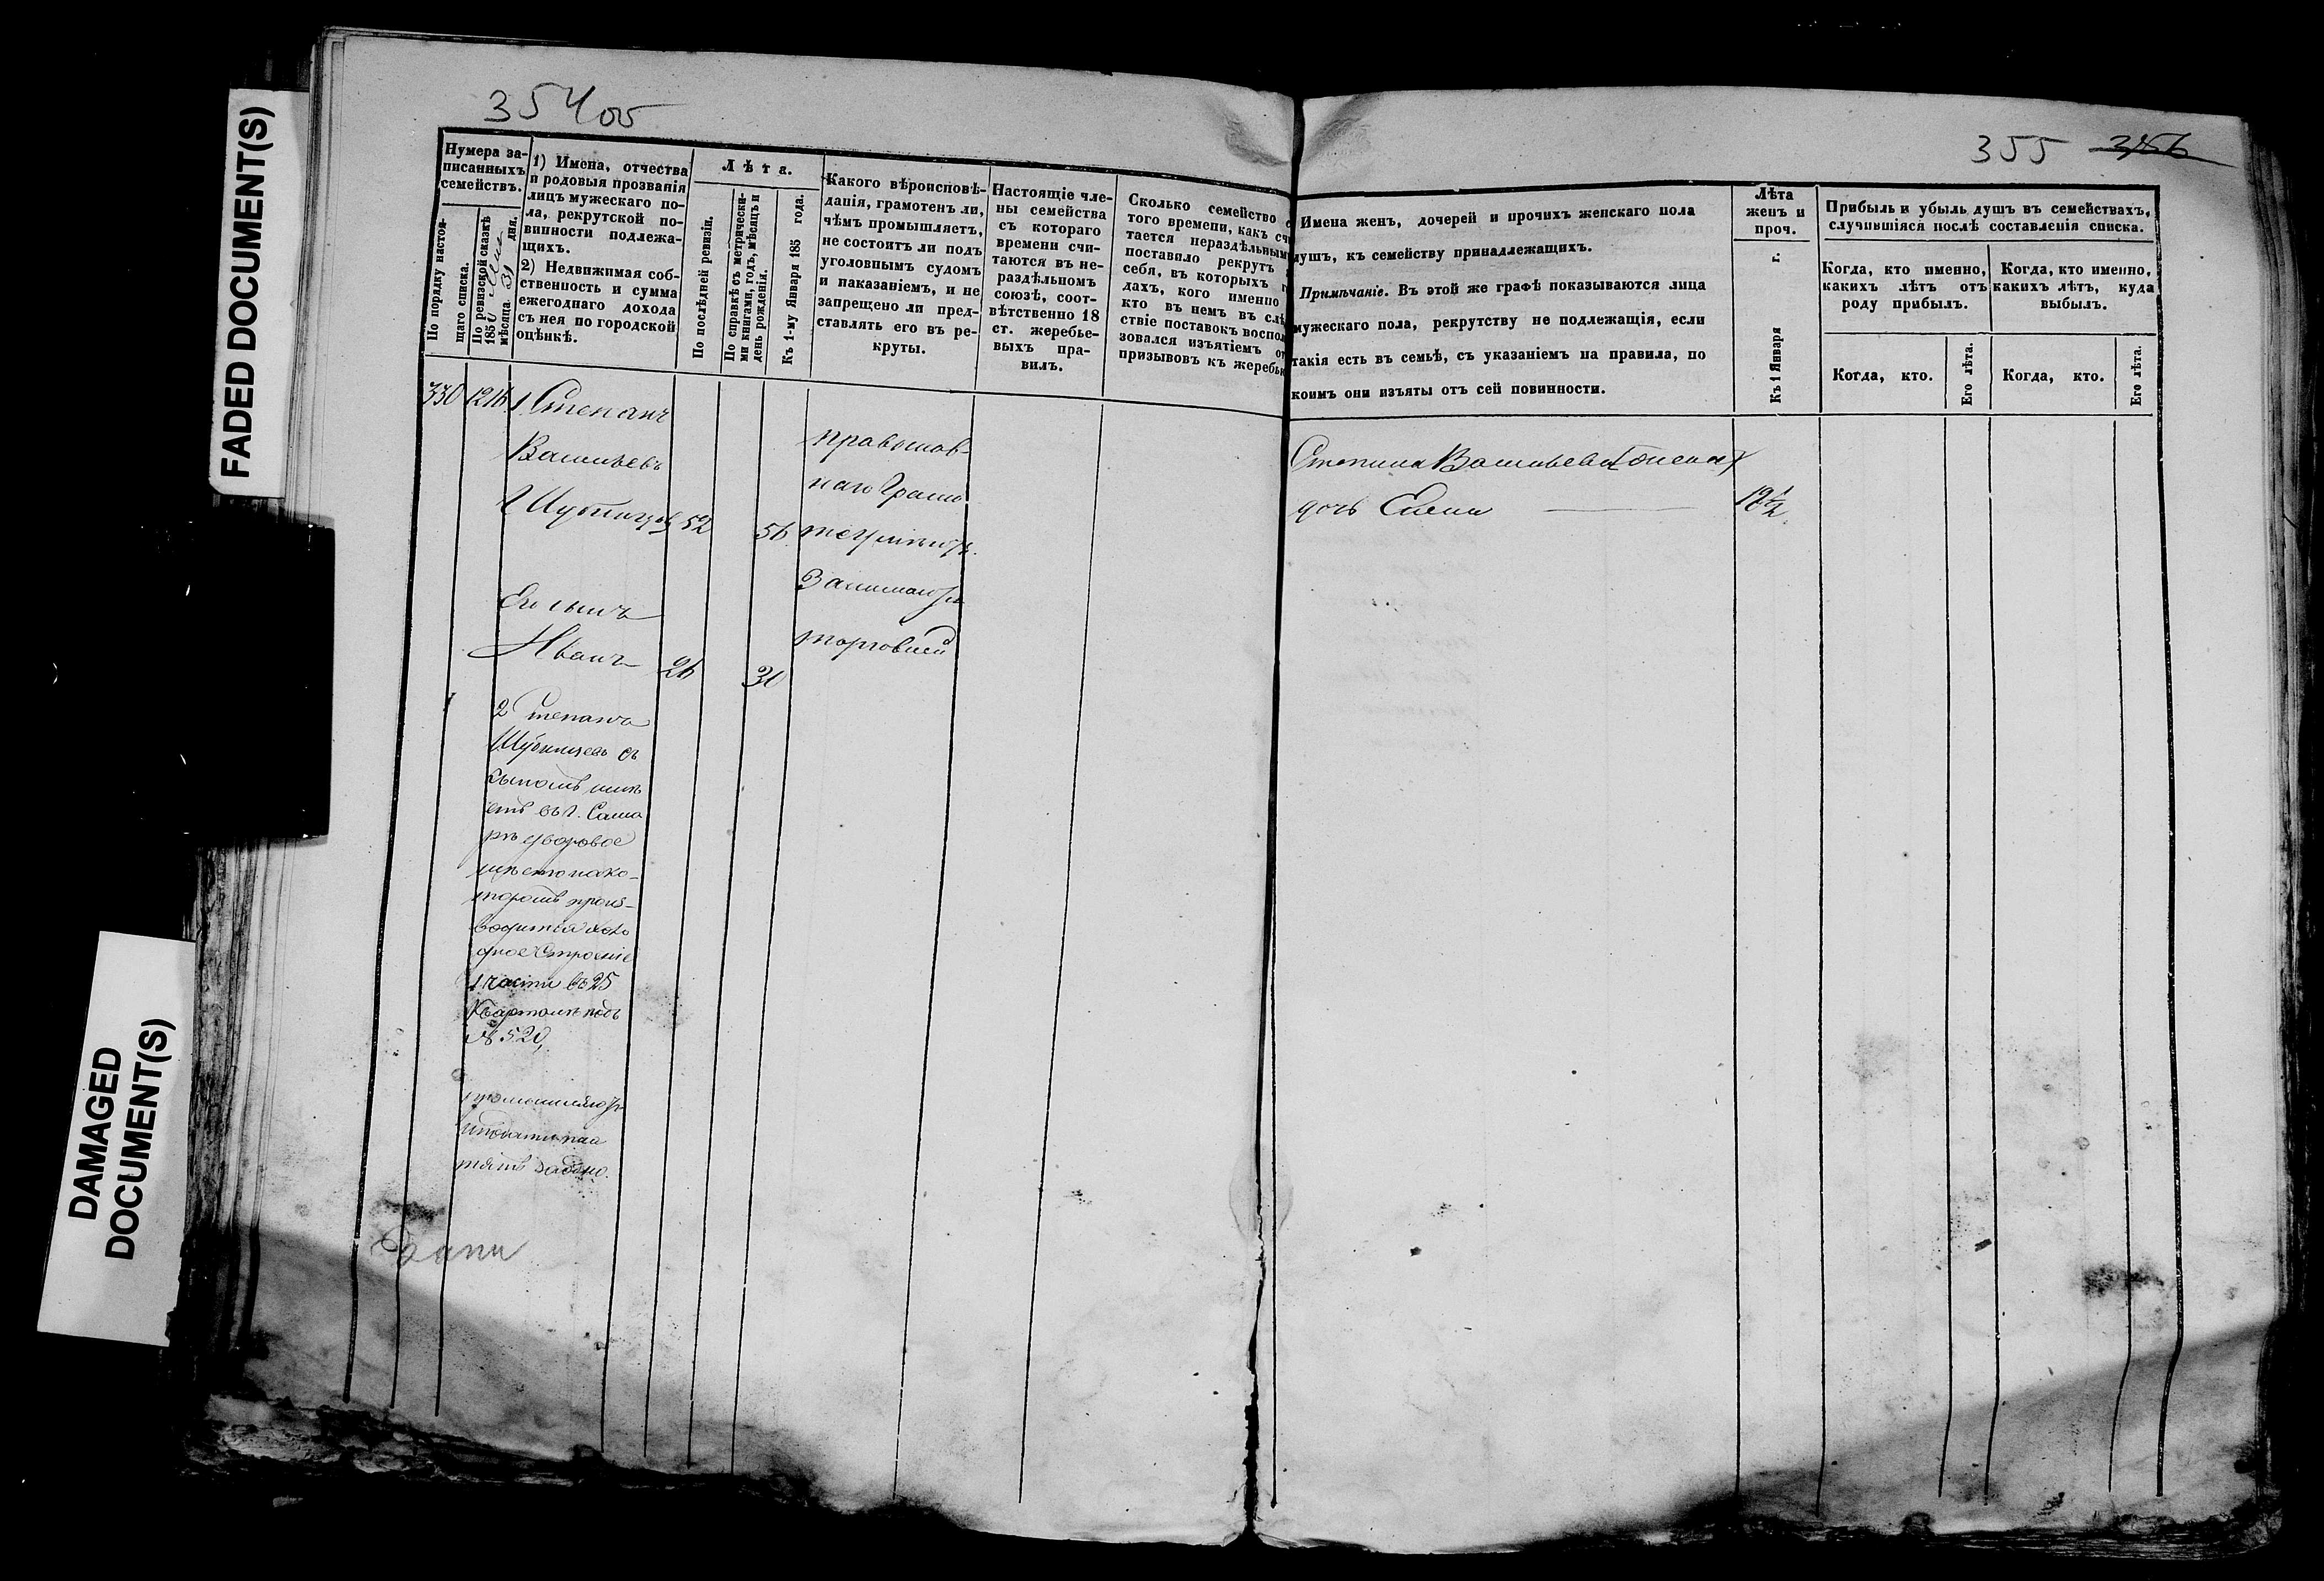 FADED DOCUMENT(S)
DAMAGED
DOCUMENT(S)
354об
Нумера за-
писанныхъ
семействъ.
По порядку настоя-
щаго списка.
По ревизской сказкѣ
185
мѣсяца 31 дня.
1) Имена, отчества
и родовыя прозванія
лицъ мужескаго по-
ла, рекрутской по-
винности подлежа-
щихъ.
2) Недвижимая соб-
ственность и сумма
ежегоднаго дохода
съ нея по городской
оцѣнкѣ.
Лѣта.
По послѣдней ревизіи.
По справкѣ съ метрически-
ми книгами, годъ, мѣсяцъ и
день рожденія.
Къ 1-му Января 185 года.
Какого вѣроисповѣ-
данія, грамотенъ ли,
чѣмъ промышляетъ,
не состоитъ ли подъ
уголовнымъ судомъ
и наказаніемъ, и не
запрещено ли пред-
ставлять его въ ре-
круты.
Настоящіе чле-
ны семейства
съ котораго
времени счи-
таются въ не-
раздѣльномъ
союзѣ, соот-
вѣтственно 18
ст. жеребье-
выхъ пра-
вилъ.
Сколько семейство с
того времени, какъ счи
тается нераздѣльным
поставило рекрутъ
себя, въ которыхъ г
дахъ, кого именно
кто въ немъ въ слѣ
ствіе поставокъ воспол
зовался изъятіемъ от
призывовъ къ жеребью
330 1216 1. Степанъ
Васильевъ
Шубинцов 52 56
Его сынъ
Иванъ 26 30
2 Степанъ
Шубинцевъ съ
сыномъ имѣ
етъ въ г. Сама
рѣ дворовое
мѣсто на ко-
торомъ произ-
водится
дное строеніе
1 части въ 25
Кварталѣ подъ
№ 520,
давно.
православ-
наго Грамо
занимаются
торговлей
355 356
Имена женъ, дочерей и прочихъ женскаго пола
душъ, къ семейству принадлежащихъ.
Примѣчаніе. Въ этой же графѣ показываются лица
мужескаго пола, рекрутству не подлежащія, если
такія есть въ семьѣ, съ указаніемъ на правила, по
коимъ они изъяты отъ сей повинности.
Лѣта
женъ и
проч.
Къ 1 Января г.
Прибыль и убыль душъ въ семействахъ,
случившіяся послѣ составленія списка.
Когда, кто именно,
какихъ лѣтъ отъ
роду прибылъ.
Когда, кто именно,
какихъ лѣтъ, куда
выбылъ.
Когда, кто.
Его лѣта.
Когда, кто.
Его лѣта.
Степана Васильева
дочь Елена 12½